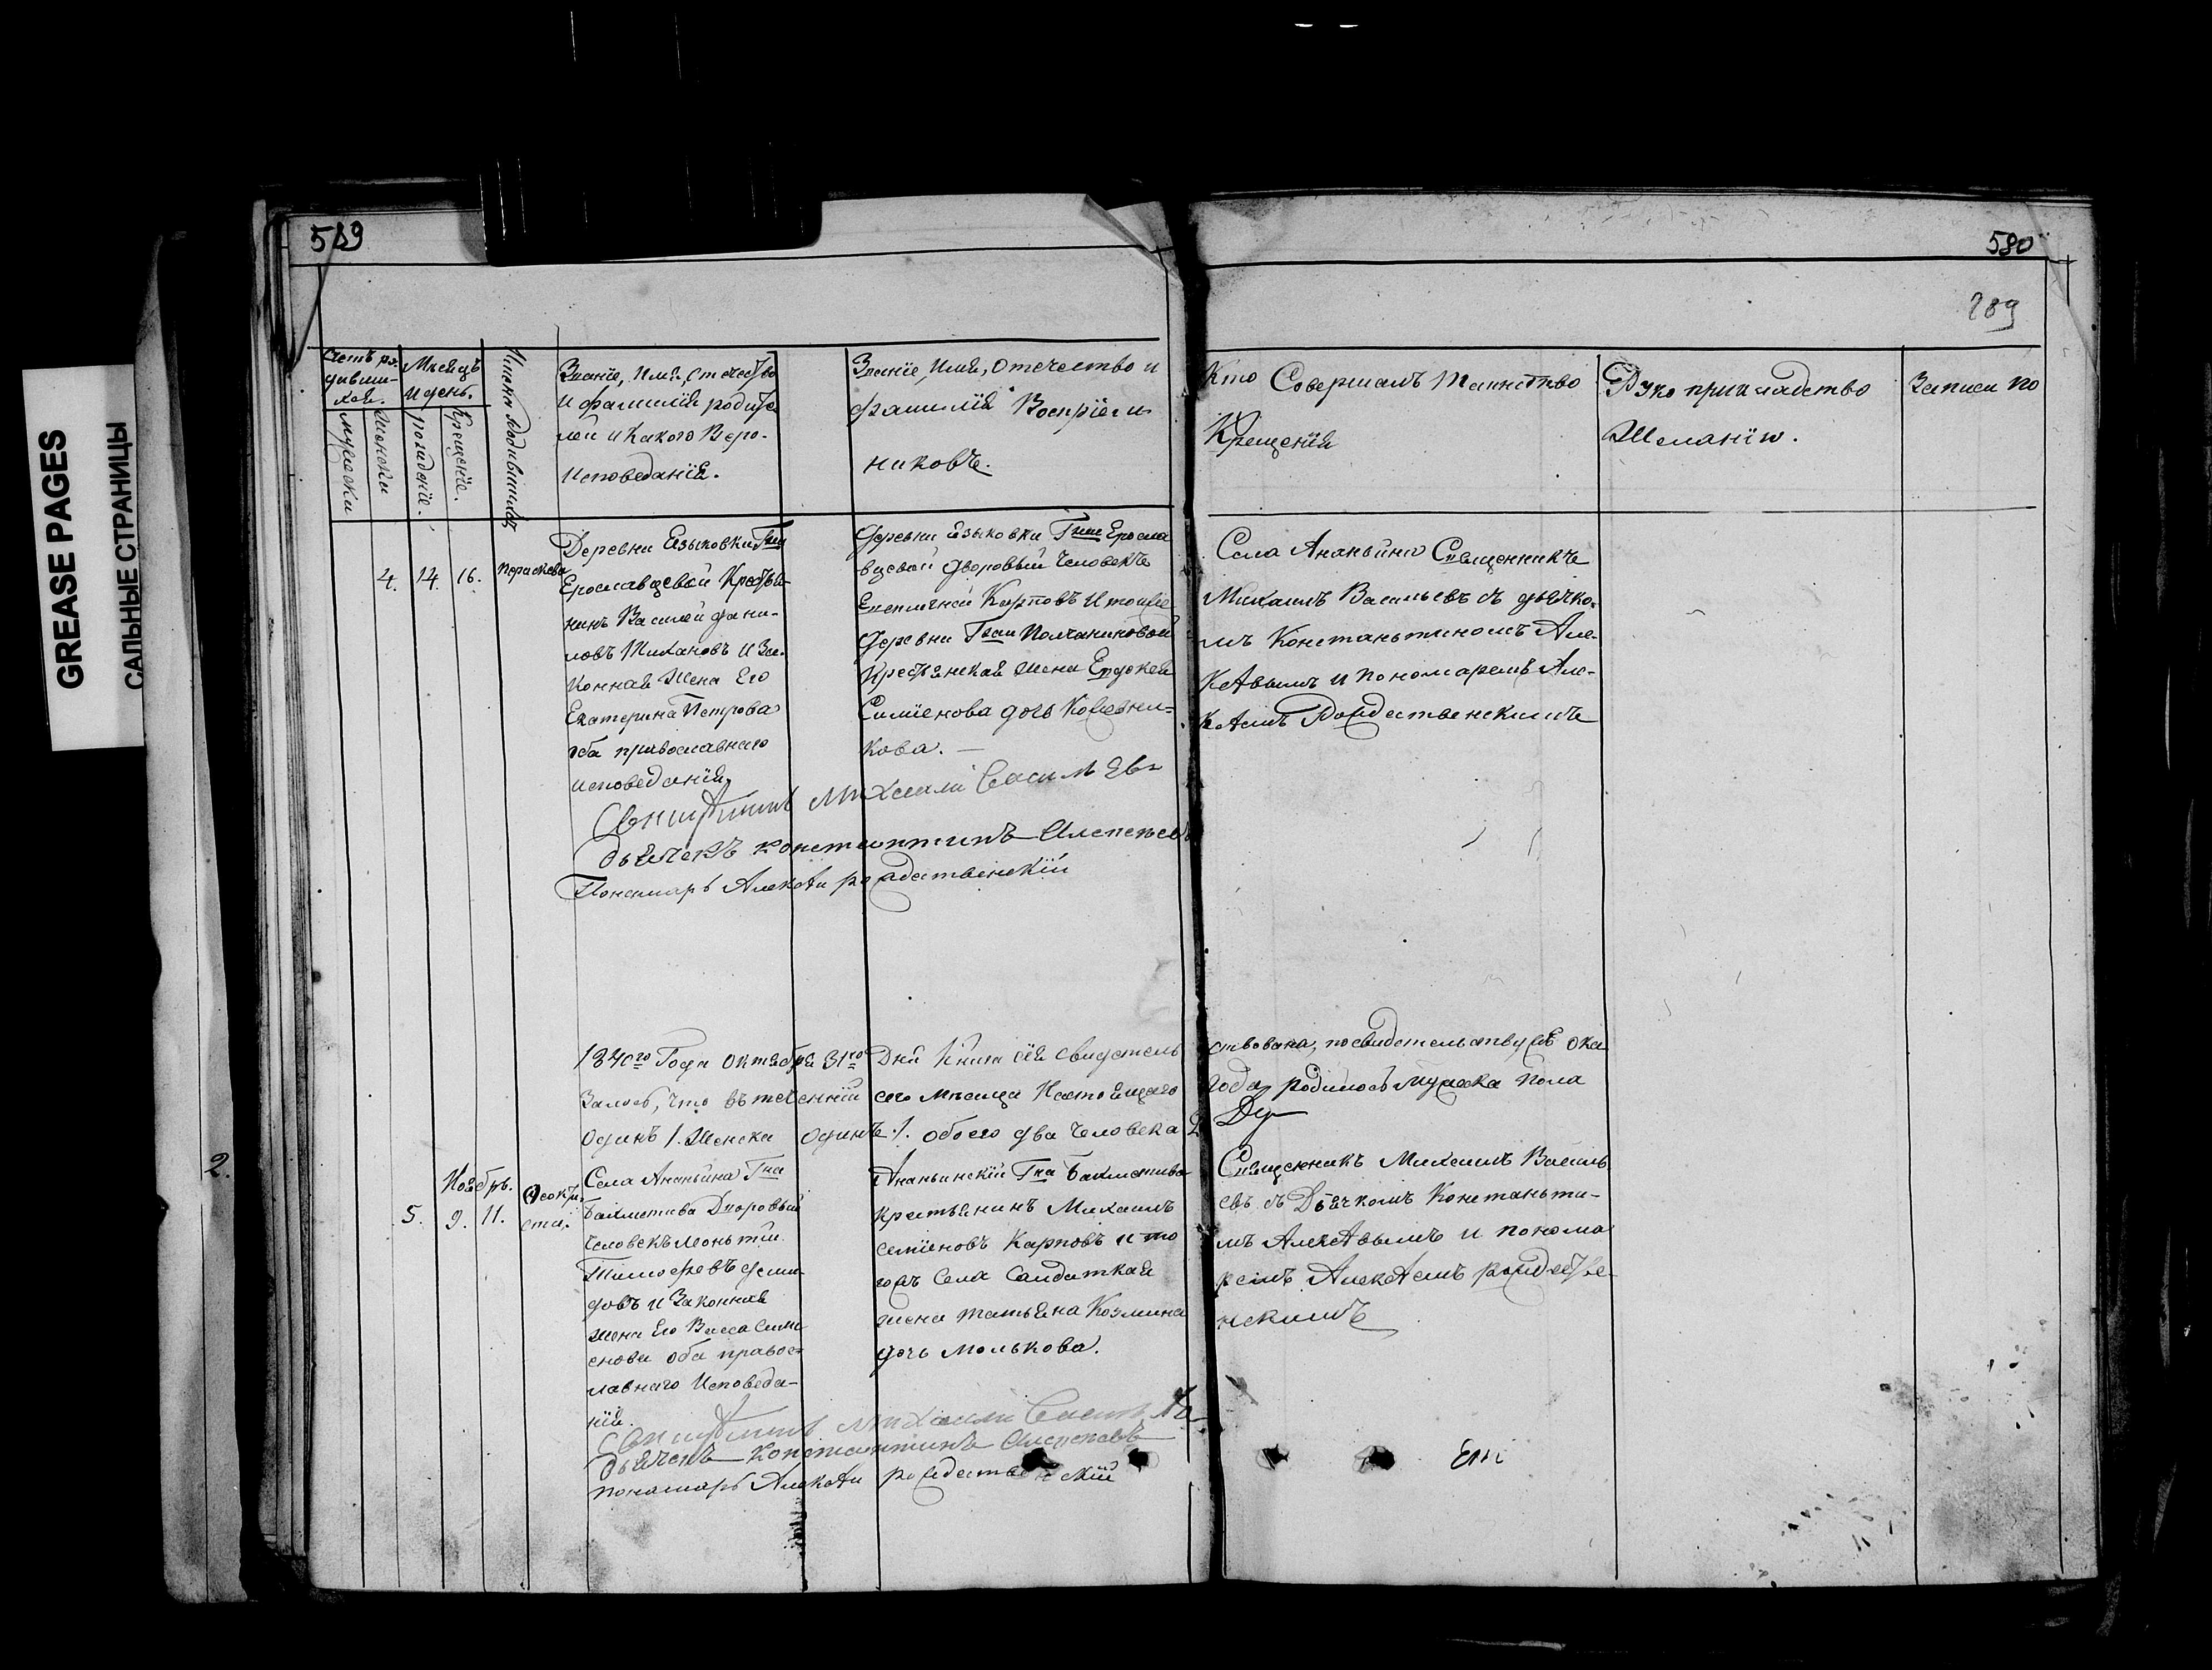 GREASE PAGES
САЛЬНЫЕ СТРАНИЦЫ
2.
589
580
289
Счетъ ро-
дивши-
хся.
Мѣсяцъ
И день.
мужески
Женски
рожденіе.
Крещеніе.
Имена Родившихся
Званіе, Имя, отечество
И фамилія родите
лей и Какого Веро-
Исповеданія.
Званіе, Имя, Отечество и
фамилія Воспріем
никовъ.
Кто Совершалъ Таинство
Крещенія
Руко прикладство
Желанію.
Записи по
4. 14. 16. Параскева
Деревни Езыковки Гжи
Ерославцевой Крестья-
нинъ Василей Дани-
ловъ Тихановъ И За-
Конная Жена Его
Екатерина Петрова
оба православнаго
исповеданія,
деревни Езыковки Гжи Еросла
вцевой дворовый Человекъ
Карповъ И тоя же
деревни Гжи Полчаниновой
Крестьянская Жена Евдокея
Симіенова дочь Кожевни=
кова. —
Села Ананьина Священникъ
Михаилъ Васильевъ съ дьячко-
мъ Констаньтиномъ Але-
Кѣевымъ и пономаремъ Але-
Кѣемъ Рождественскимъ
Священникъ Михаилъ Васильевъ
дьячекъ Константинъ Алексеевъ
Пономарь Алексѣй рождественскій
1840го Года Октября 31го Дня Книга сія свидетель ствована, по свидетельству ея ока
залось, что въ теченіи сего месяца Настоящаго Года, родилось мужеска пола
Одинъ 1. Женска Одинъ 1. обоего два Человека 2
Ноябрь.
5. 9. 11.
Ѳеокти-
ста.
Села Ананьина Гна
Бахметива Дворовый
Человекъ Леонтій
Тимофевъ деми-
довъ и Законная
жена Его Васса Сими
енова оба правос-
лавнаго Исповеда-
нія.
Ананьинскій Гна Бахметива
крестьянинъ Михаилъ
Семіеновъ Карповъ и то
гожъ Села Салдаткая
жена Татьяна Козмина
дочь Молькова.
Священникъ Михаилъ Василь
евъ съ Дьячкомъ Констаньти-
мъ Алексѣвымъ и понома
ремъ Алексѣемъ рождестве-
нскимъ
Священникъ Михаилъ Васильевъ
дьячекъ Константинъ Алексеевъ
пономарь Алексѣй рождественскій